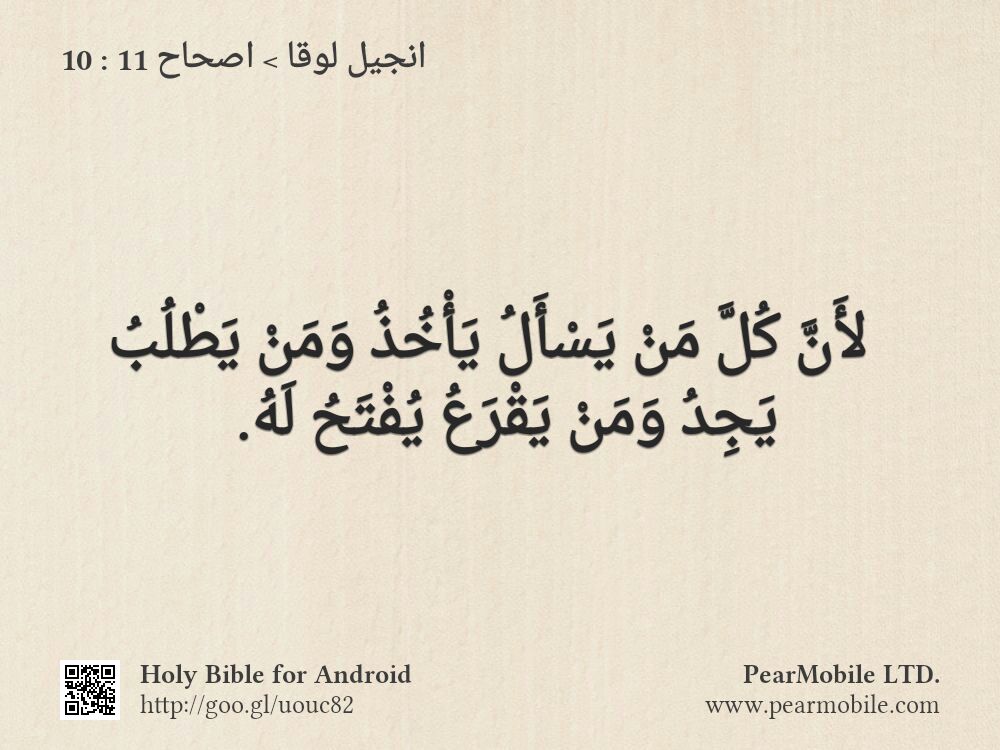 انجيل لوقا > اصحاح 11 : 10
لأَنَّ كُلَّ مَنْ يَسْأَلُ يَأْخُذُ وَمَنْ يَطْلُبُ
يَجِدُ وَمَنْ يَقْرَعُ يُفْتَحُ لَهُ.
Holy Bible for Android
http://goo.gl/uouc82
PearMobile LTD.
www.pearmobile.com